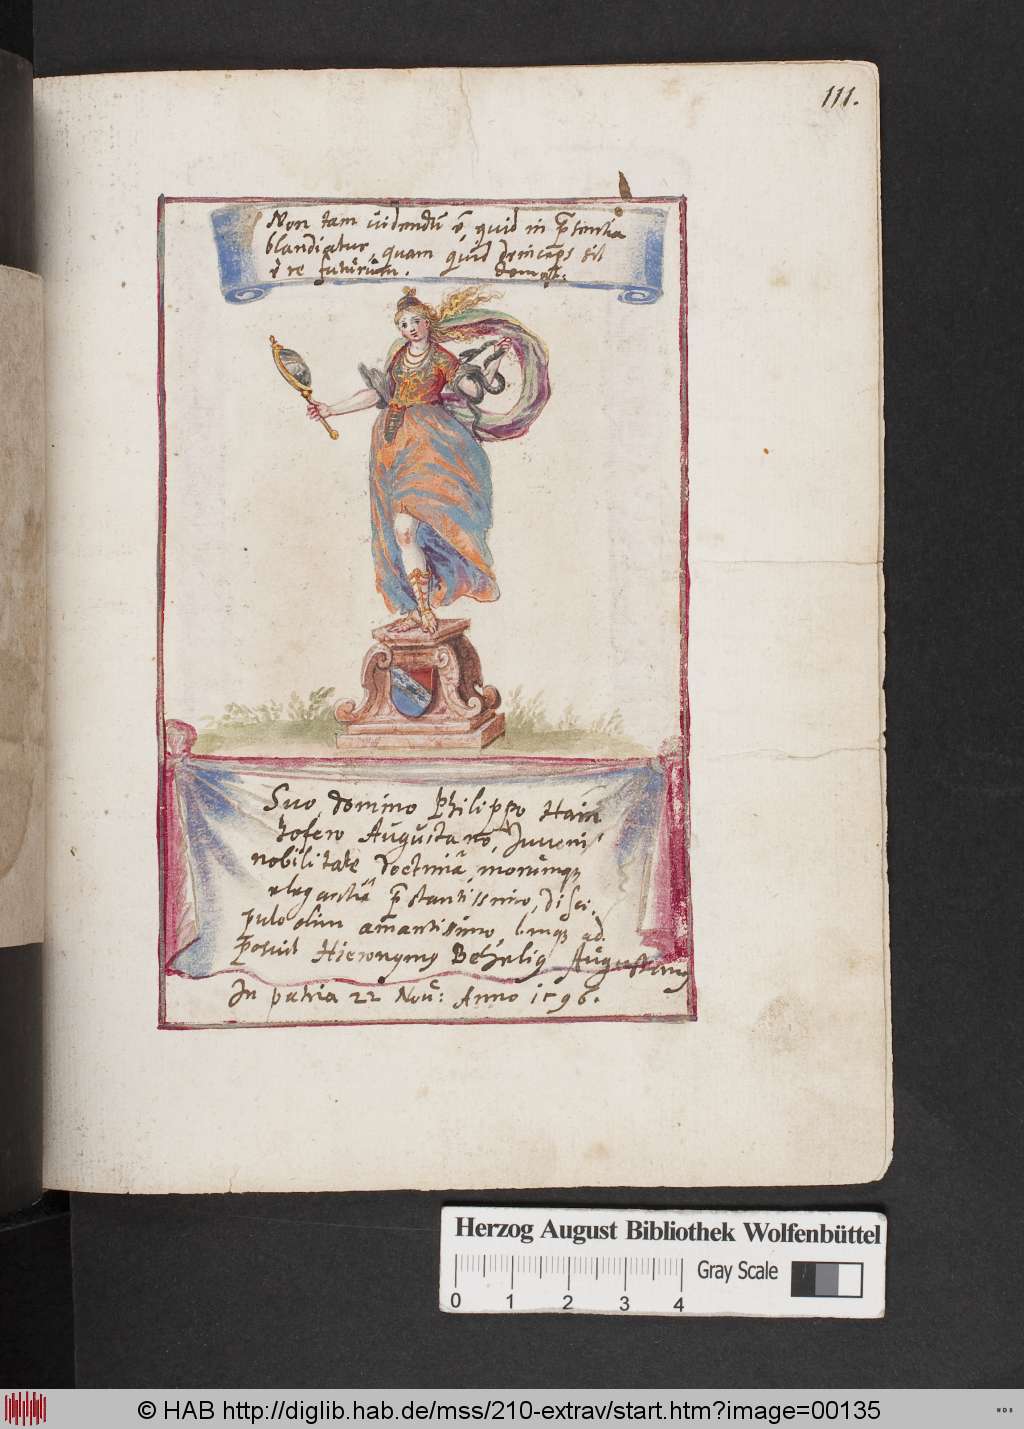 111.
Non tam videndū ē, quid in p̄sentia
blandiatur, quam quid deinceps sit
ē re futurum.
Suo domino Philippo Hain
hofero Augustano, Juveni
nobilitate doctrinā, morumq;
elegantiā p̄stantissimo, disci.
pulo olim amantissimo, l. mq; ad.
posuit Hieronymus Augustanus
In patria 22 Nou: Anno 1596.
Herzog August Bibliothek Wolfenbüttel
Gray Scale
0 1 2 3 4
© HAB http://diglib.hab.de/mss/210-extrav/start.htm?image=00135